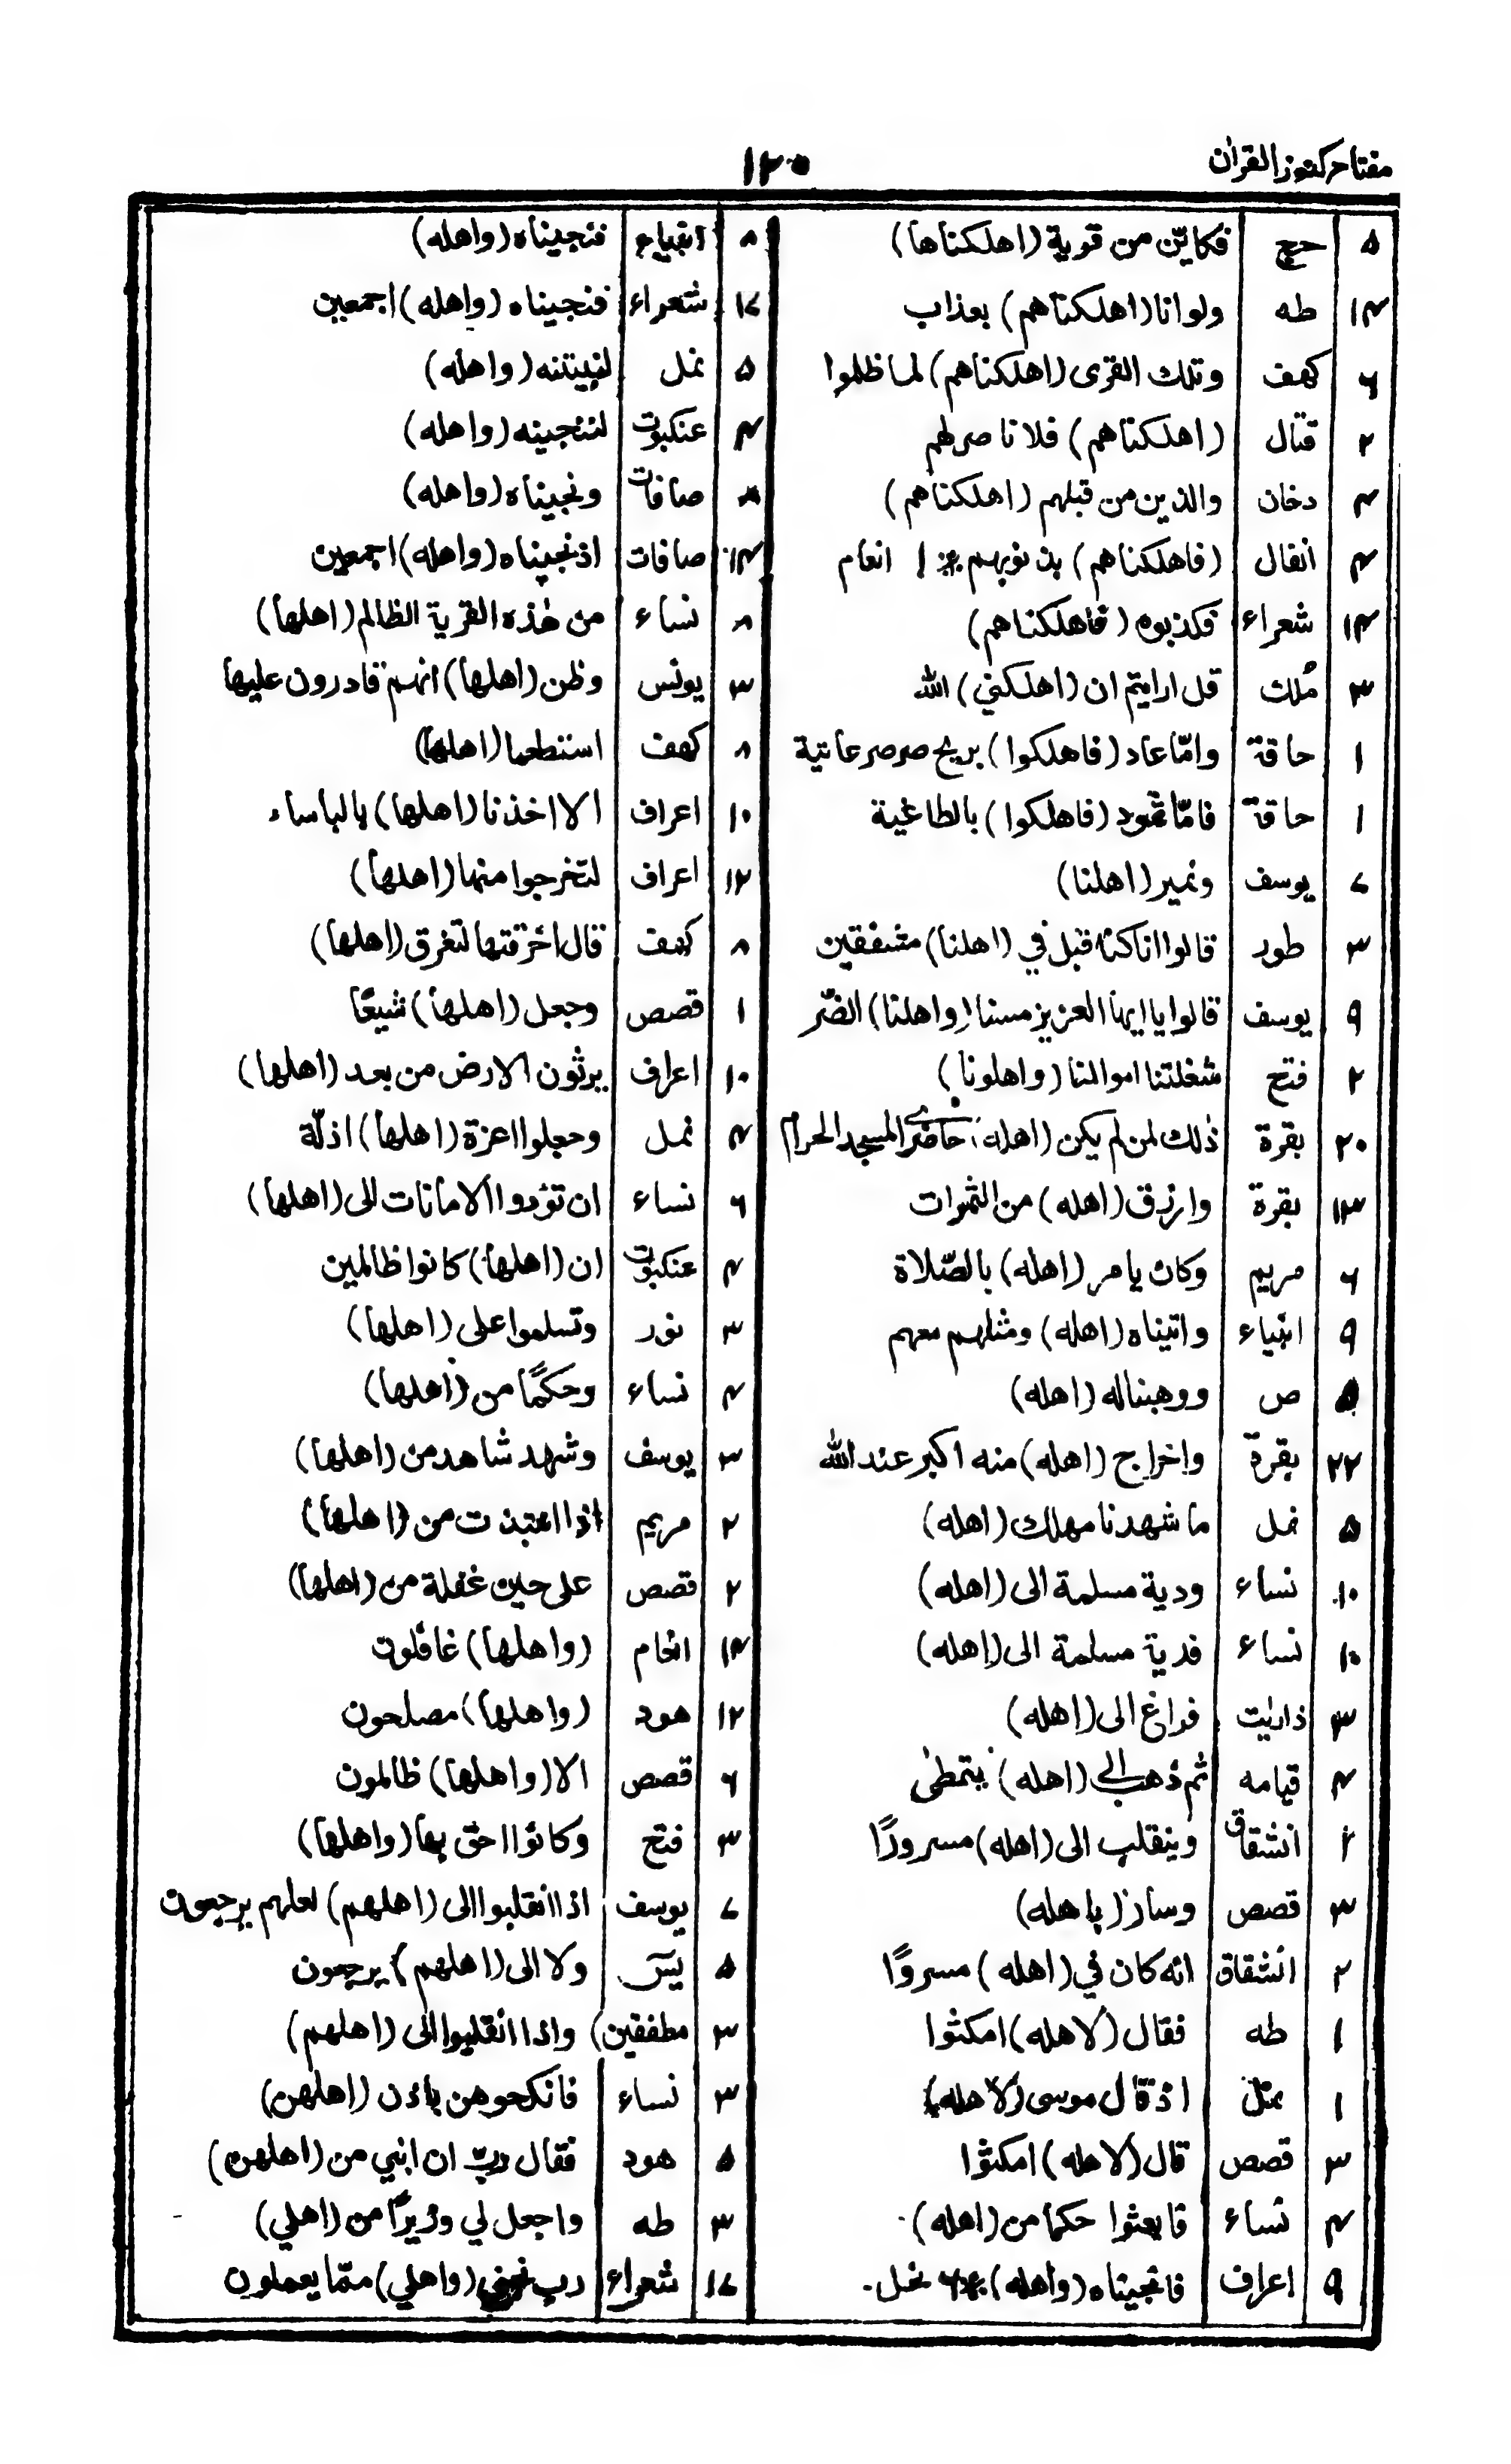 مفتاح كنوز القرآن
١٢٠
٥ حج فكايّن من قرية (اهلكناها)
١٤ طه ولو انا (اهلكناهم) بعذاب
٦ كهف وتلك القرى (اهلكناهم) لما ظلموا
٢ قتال (اهلكناهم) فلا ناصر لهم
٤ دخان والذين من قبلهم (اهلكناهم)
٤ انفال (فاهلكناهم) بذنوبهم * ١ انعام
١٤ شعراء فكذبوه (فاهلكناهم)
٣ مُلك قل ارايتم ان (اهلكني) الله
١ حاقة وامّا عاد (فاهلكوا) بريح صرصر عاتية
١ حاقة فامّا ثمود (فاهلكوا) بالطاغية
٧ يوسف ونمير (اهلنا)
٣ طور قالوا انا كنا قبل في (اهلنا) مشفقين
٩ يوسف قالوا يا ايها العزيز مسنا (واهلنا) الضّر
٢ فتح شغلتنا اموالنا (واهلونا)
٢٠ بقرة ذٰلك لمن لم يكن (اهله) حاضري المسجد الحرام
١٣ بقرة وارزق (اهله) من الثمرات
٦ مريم وكان يامر (اهله) بالصّلاة
٩ انبياء واتيناه (اهله) ومثلهم معهم
٥ ص ووهبنا له (اهله)
٢٢ بقرة واخراج (اهله) منه اكبر عند الله
٥ نمل ما شهدنا مهلك (اهله)
١٠ نساء ودية مسلمة الى (اهله)
١٠ نساء فدية مسلمة الى (اهله)
٣ ذاريٰت فراغ الى (اهله)
٤ قيامه ثم ذهب الى (اهله) يتمطىٰ
٢ انشقاق وينقلب الى (اهله) مسرورًا
٣ قصص وسار (باهله)
٢ انشقاق انه كان في (اهله) مسرورًا
١ طه فقال (لاهله) امكثوا
١ نمل اذ قال موسى (لاهله)
٣ قصص قال (لاهله) امكثوا
٤ نساء فابعثوا حكما من (اهله)
٩ اعراف فانجيناه (واهله) * ٤ نمل
٨ انبياء فنجيناه (واهله)
١٧ شعراء فنجيناه (واهله) اجمعين
٥ نمل لنبيتنه (واهله)
٤ عنكبوت لننجينه (واهله)
صافات ونجيناه (واهله)
١٤ صافات اذ نجيناه (واهله) اجمعين
٨ نساء من هٰذه القرية الظالم (اهلها)
٣ يونس وظن (اهلها) انهم قادرون عليها
٨ كهف استطعما (اهلها)
١٠ اعراف الا اخذنا (اهلها) بالباساء
١٢ اعراف لتخرجوا منها (اهلها)
٨ كهف قال اخرقتها لتغرق (اهلها)
١ قصص وجعل (اهلها) شيعًا
١٠ اعراف يرثون الارض من بعد (اهلها)
٤ نمل وجعلوا اعزة (اهلها) اذلّة
٦ نساء ان تؤدوا الامانات الى (اهلها)
٤ عنكبوت ان (اهلها) كانوا ظالمين
٣ نور وتسلموا على (اهلها)
٤ نساء وحكمًا من (اهلها)
٣ يوسف وشهد شاهد من (اهلها)
٢ مريم اذا انتبذت من (اهلها)
٢ قصص على حين غفلة من (اهلها)
١٤ انعام (واهلها) غافلون
١٢ هود (واهلها) مصلحون
٦ قصص الا (واهلها) ظالمون
٣ فتح وكانوا احق بها (واهلها)
٧ يوسف اذا انقلبوا الى (اهلهم) لعلهم يرجعون
٥ يٰسٓ ولا الى (اهلهم) يرجعون
٣ مطففين) واذا انقلبوا الى (اهلهم)
٣ نساء فانكحوهن باذن (اهلهن)
٥ هود فقال ربّ ان ابني من (اهلهن)
٣ طه واجعل لي وزيرًا من (اهلي)
١٧ شعراء رب نجني (واهلي) ممّا يعملون